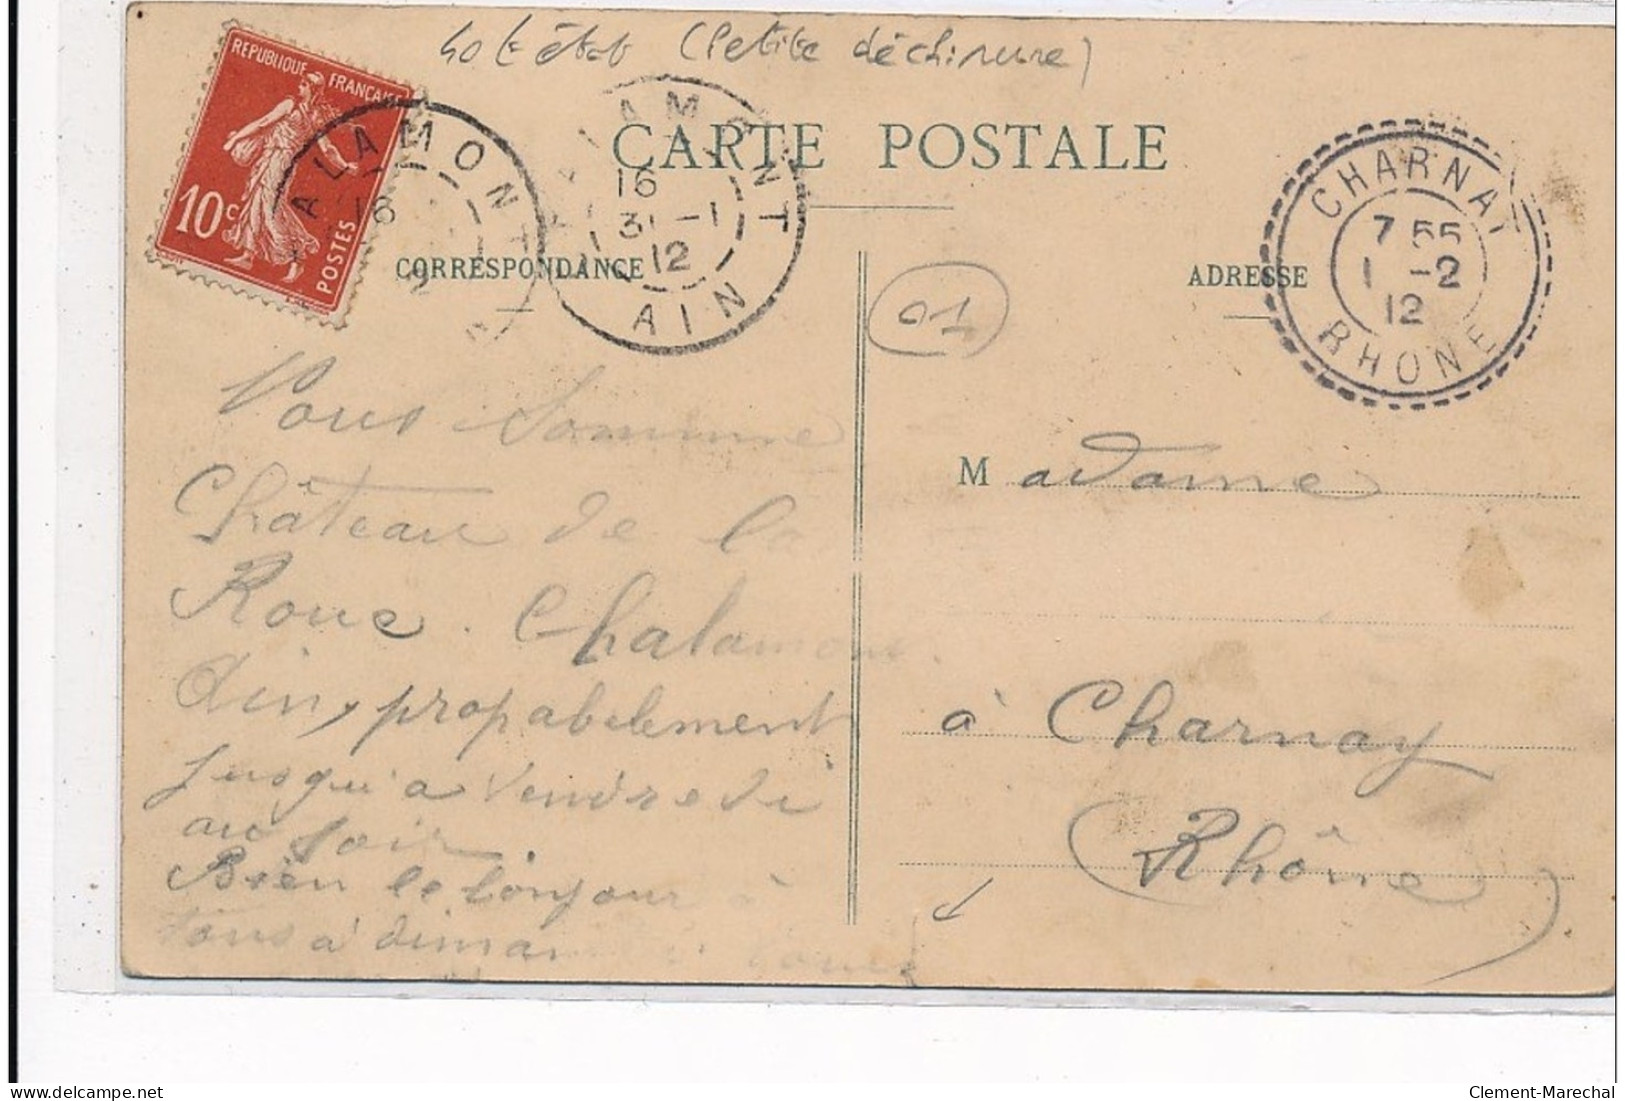 état (Petite déchirure)
REPUBLIQUE FRANÇAISE
10c
POSTES
ALAMON
16
ALAMONT
16
31 -1
12
AIN
CARTE POSTALE
CHARNAY
7 55
1 -2
12
RHONE
CORRESPONDANCE
ADRESSE
01
Nous Somme
Château de la
Roue. Chalamon
Ain, propabelement
jusqu'a Vendredi
au soir.
Bien le bonjour à
tous a diman
Madame
à Charnay
(Rhône)
Clement-Marechal